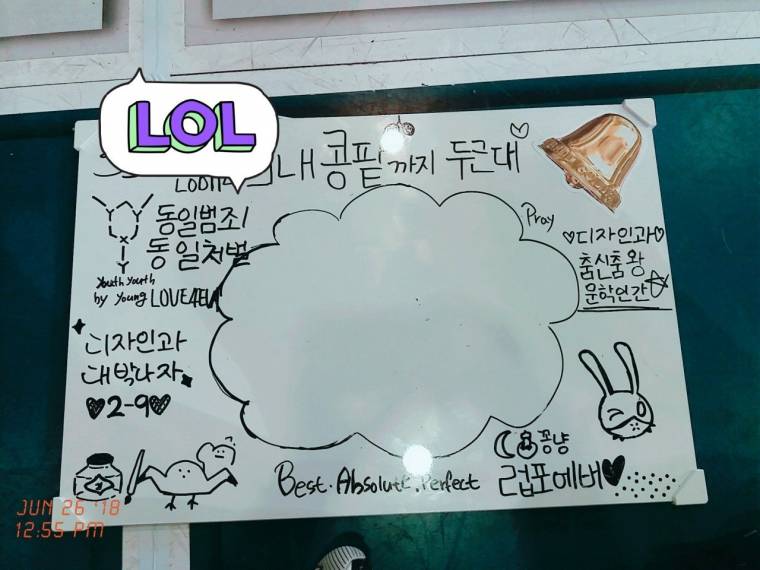 LOL
내 콩팥까지 두근대
동일범죄
동일처벌
Youth Youth
by Young LOVE4EVA
Pray
♡디자인과♡
춤신춤왕
문학인간
디자인과
대박나자
♥2-9♥
꽁냥
Best. Absolute. Perfect
럽포에버♥
JUN 26 '18
12:55 PM